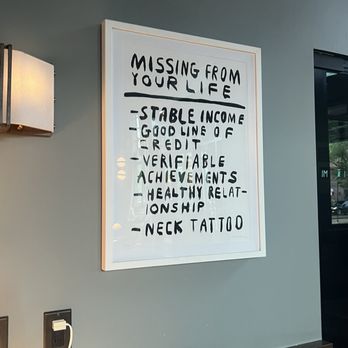 MISSING FROM
YOUR LIFE
-STABLE INCOME
-GOOD LINE OF
CREDIT
-VERIFIABLE
ACHIEVEMENTS
-HEALTHY RELAT-
IONSHIP
-NECK TATTOO